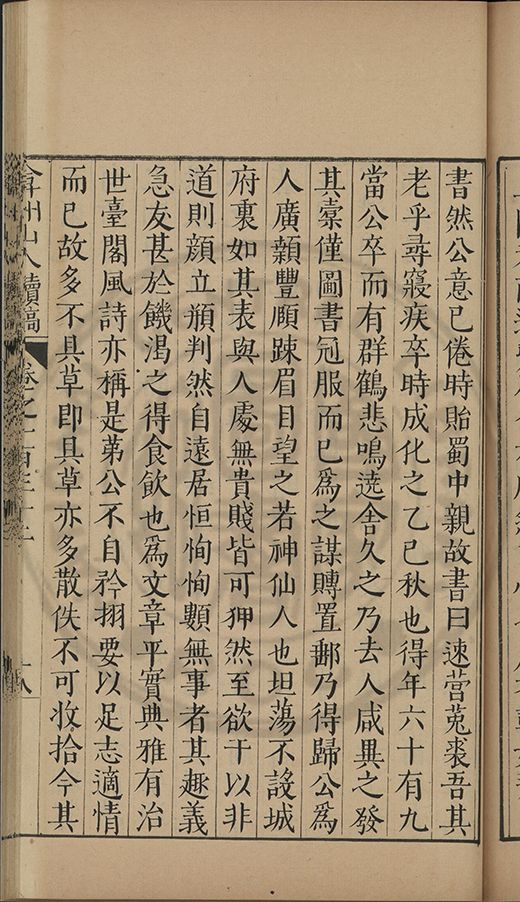 書然公意已倦時貽蜀中親故書曰速營菟裘吾其
老乎尋寢疾卒時成化之乙巳秋也得年六十有九
當公卒而有群鶴悲鳴遶舍久之乃去人咸異之發
其橐僅圖書冠服而已為之謀賻置郵乃得歸公為
人廣顙豐頤踈眉目望之若神仙人也坦蕩不設城
府裏如其表與人處無貴賤皆可狎然至欲干以非
道則顏立頩判然自遠居恒恂恂類無事者其趣義
急友甚於饑渴之得食飲也為文章平實典雅有治
世臺閣風詩亦稱是第公不自矜栩要以足志適情
而已故多不具草即具草亦多散佚不可收拾今其
弇州山人續稿 卷之一百三十一 十八